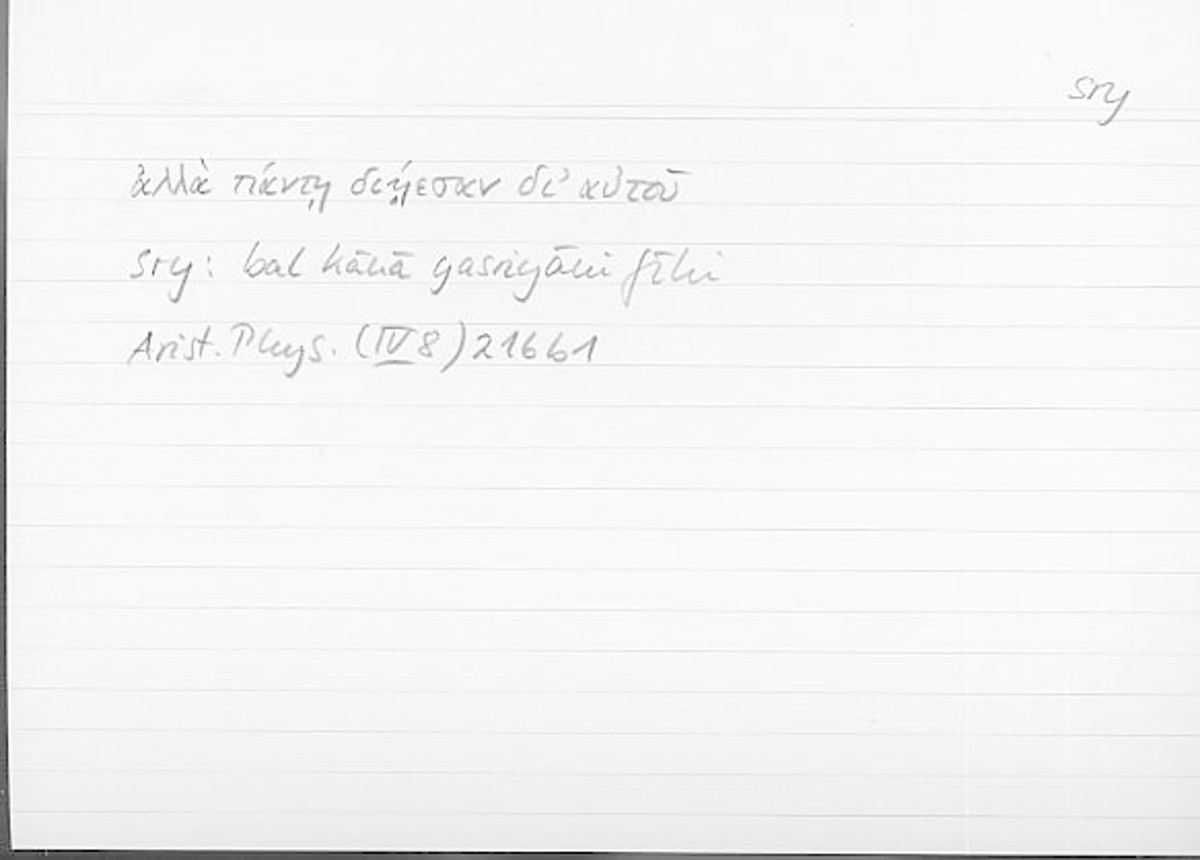 sry
ἀλλὰ πάντῃ διῄεσαν δι' αὐτοῦ
sry: bal kānā yasriyāni fīhi
Arist. Phys. (IV 8) 216b1